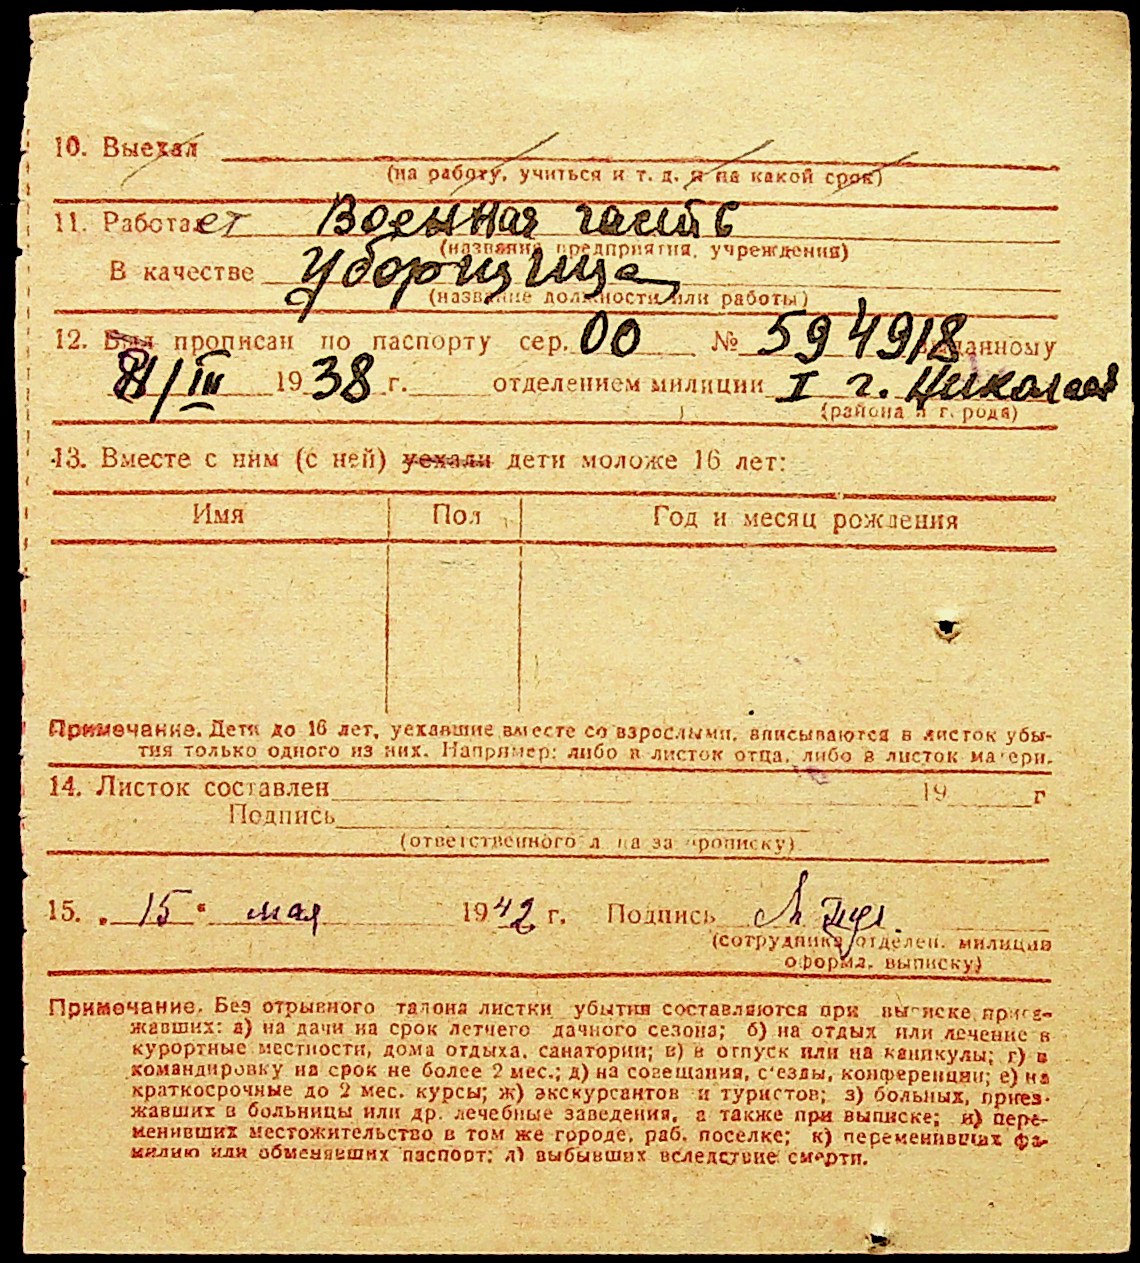 10. Выехал
(на работу, учиться и т. д. и на какой срок)
11. Работает Военная часть
(название предприятия, учреждения)
В качестве Уборщица
(название должности или работы)
12. Был прописан по паспорту сер. 00 № 594918 выданному
/III 1938 г. отделением милиции I г. Николаев
(района и города)
13. Вместе с ним (с ней) уехали дети моложе 16 лет:
Имя Пол Год и месяц рождения
Примечание. Дети до 16 лет, уехавшие вместе со взрослыми, вписываются в листок убы-
тия только одного из них. Например: либо в листок отца, либо в листок матери.
14. Листок составлен 19 г
Подпись
(ответственного лица за прописку)
15. „15“ мая 1942 г. Подпись
(сотрудника отделен. милиции
оформл. выписку)
Примечание. Без отрывного талона листки убытия составляются при выписке приез-
жавших: а) на дачи на срок летнего дачного сезона; б) на отдых или лечение в
курортные местности, дома отдыха, санатории; в) в отпуск или на каникулы; г) в
командировку на срок не более 2 мес.; д) на совещания, с'езды, конференции; е) на
краткосрочные до 2 мес. курсы; ж) экскурсантов и туристов; з) больных, приез-
жавших в больницы или др. лечебные заведения, а также при выписке; и) пере-
менивших местожительство в том же городе, раб. поселке; к) переменивших фа-
милию или обменявших паспорт; л) выбывших вследствие смерти.